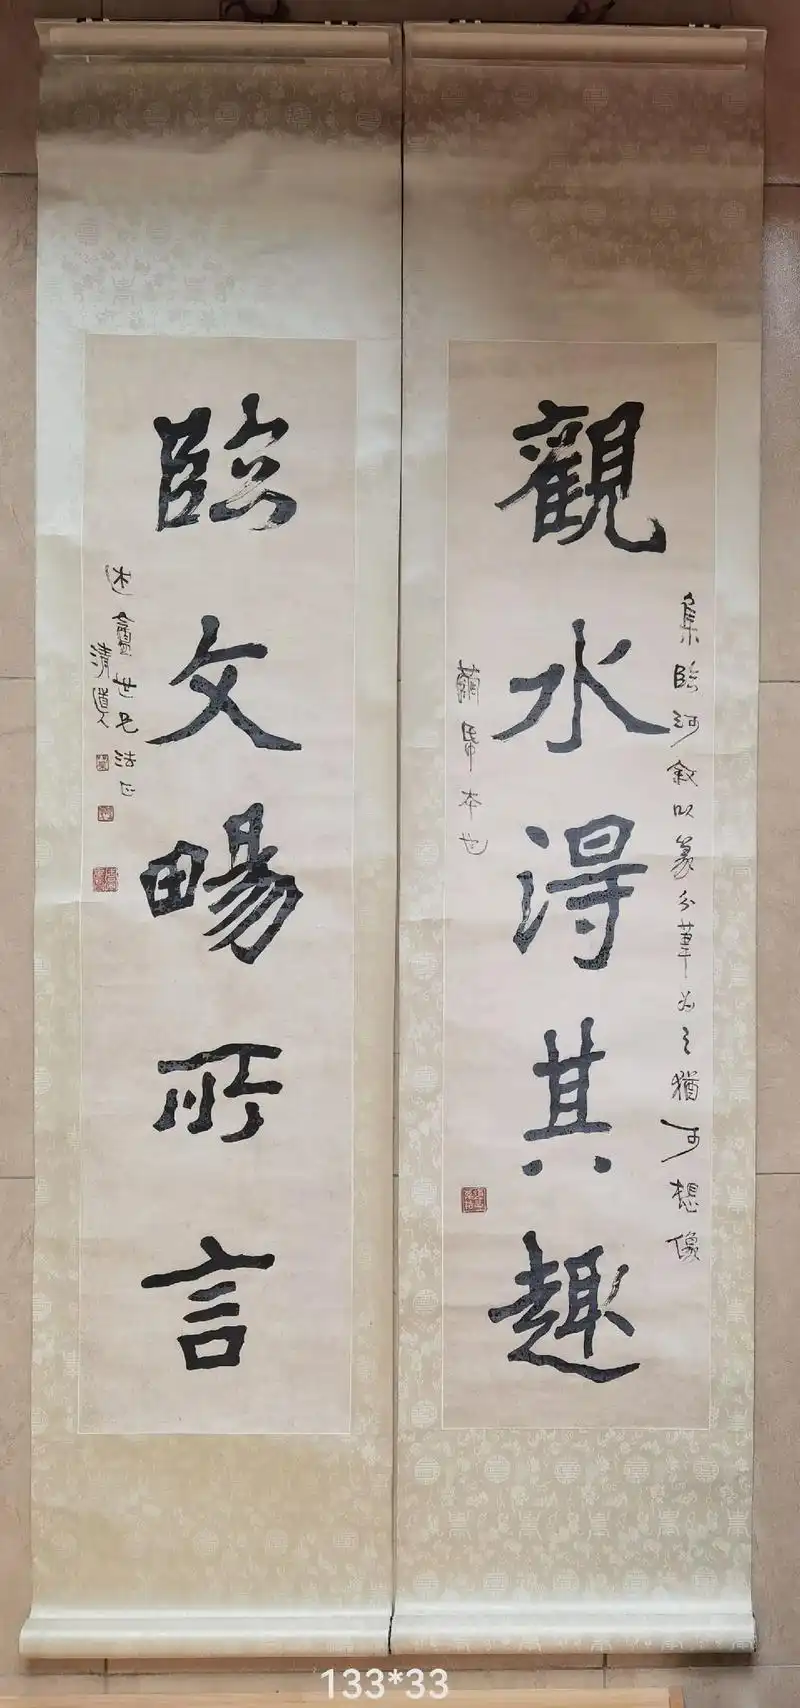 觀水得其趣
集臨河敘以篆分筆為之猶可想像
蘭亭本也
臨文暢所言
世兄法正
清道人
133*33